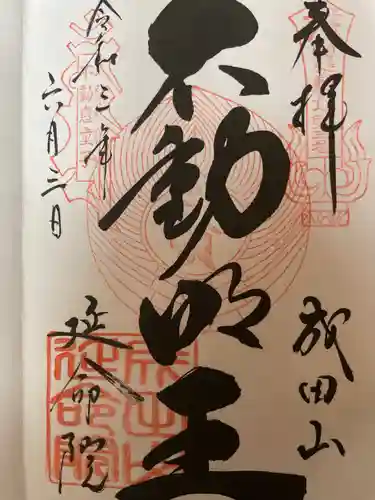 奉拝
成田山
不動明王
令和三年
六月三日
延命院